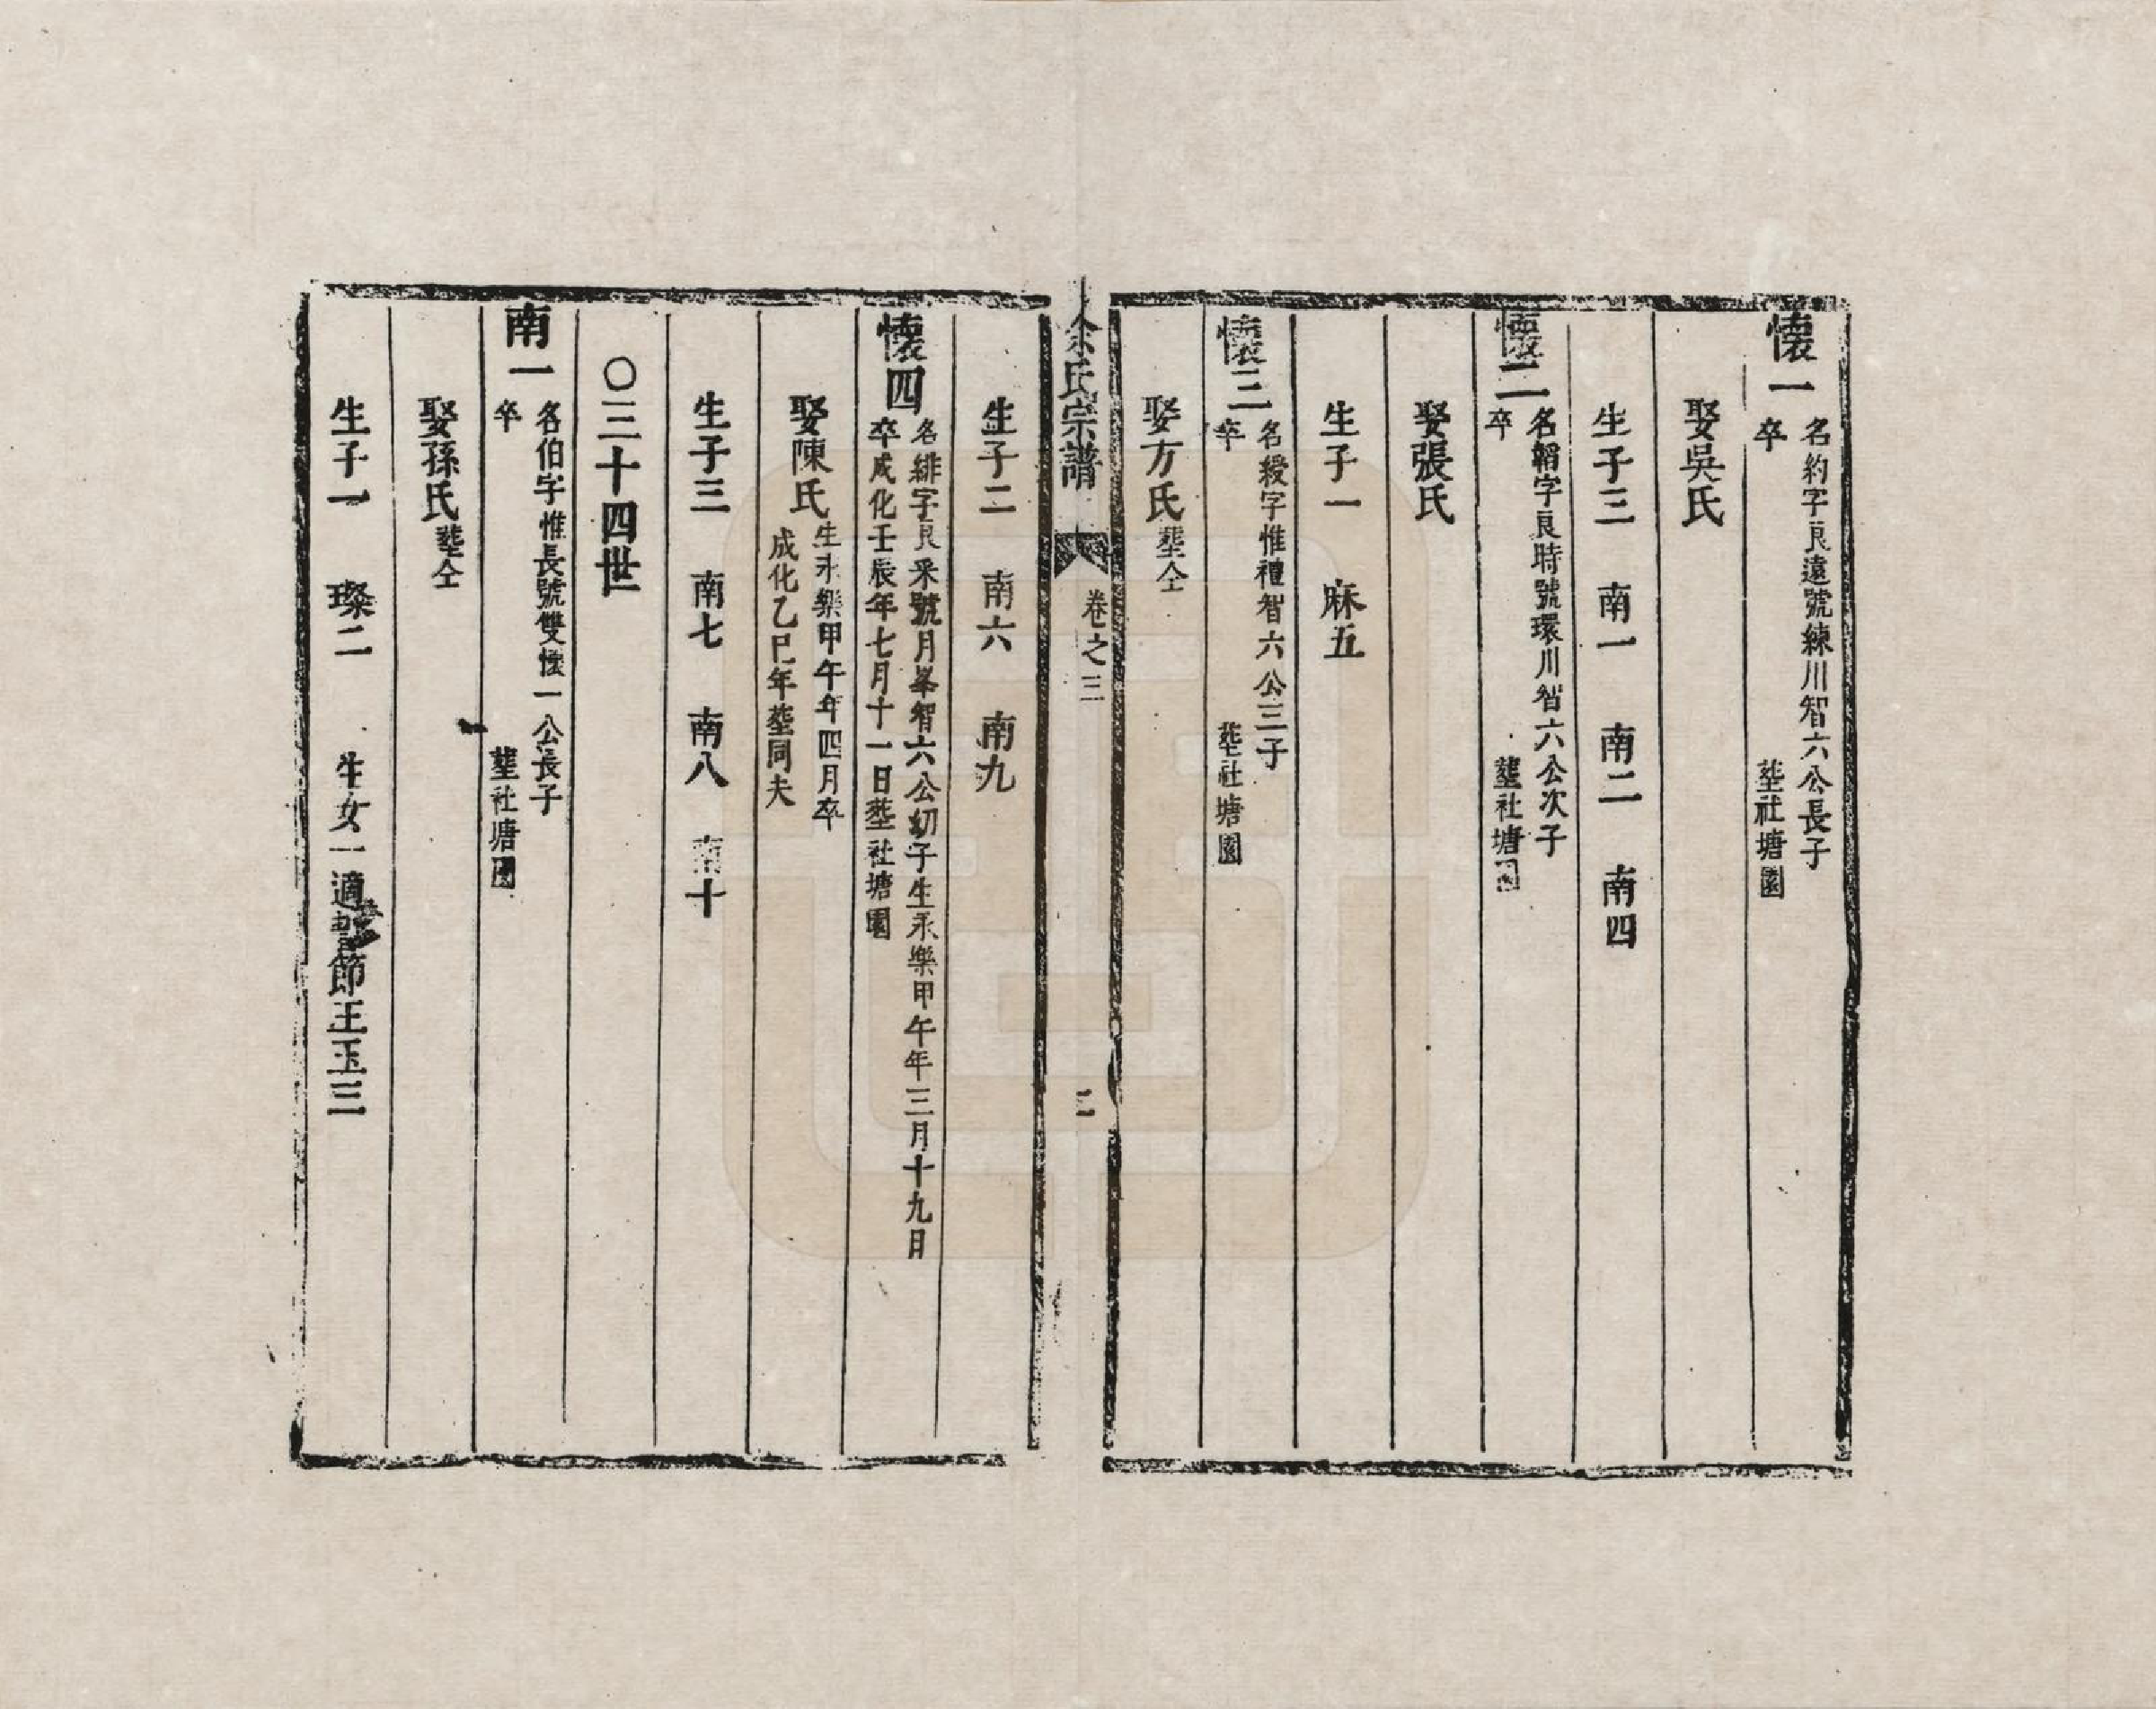 懷一 名約字良遠號練川智六公長子
卒 塟社塘園
娶吳氏
生子三 南一 南二 南四
懷二 名韜字良時號環川智六公次子
卒 塟社塘園
娶張氏
生子一 麻五
懷三 名綬字惟禮智六公三子
卒 塟社塘園
娶方氏塟仝
余氏宗譜 卷之三 二
生子二 南六 南九
懷四 名緋字良采號月峯智六公幼子生永樂甲午年三月十九日
卒成化壬辰年七月十一日塟社塘園
娶陳氏 生永樂甲午年四月卒
成化乙巳年塟同夫
生子三 南七 南八 南十
○三十四世
南一 名伯字惟長號雙懷一公長子
卒 塟社塘園
娶孫氏塟仝
生子一 璨二 生女一適節王玉三